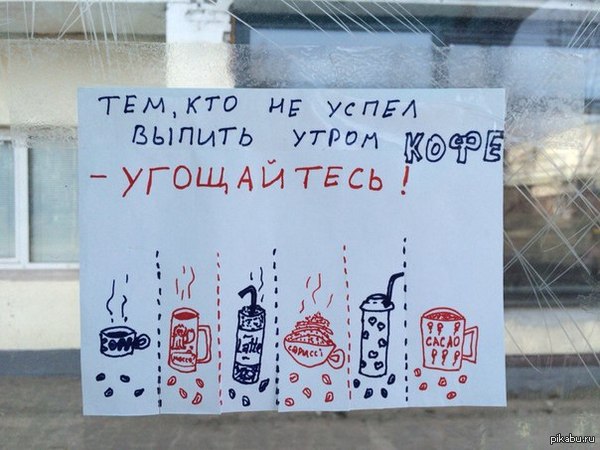 ТЕМ, КТО НЕ УСПЕЛ
ВЫПИТЬ УТРОМ КОФЕ
- УГОЩАЙТЕСЬ!
Latte
CAPUCCI
CACAO
pikabu.ru